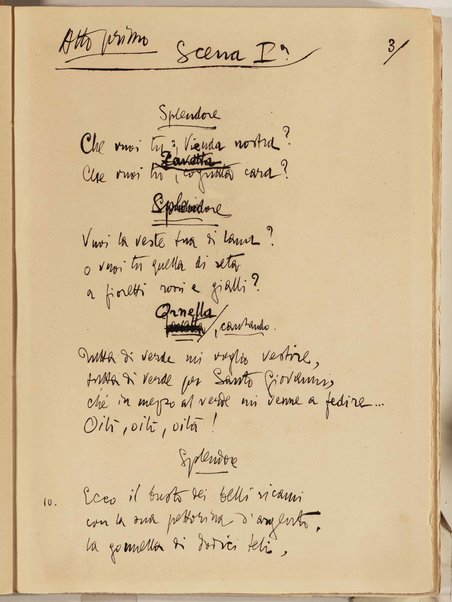 Atto primo
Scena Iª
3/
Splendore
Che vuoi tu, Vienda nostra?
Favetta
Che vuoi tu, cognata cara?
Splendore
Vuoi la veste tua di lana?
o vuoi tu quella di seta
a fioretti rossi e gialli?
Ornella
, cantando.
Tutta di verde mi voglio vestire,
tutta di verde per Santo Giovanni,
ché in mezzo al verde mi venne a fedire...
Oilì, oilì, oilà!
Splendore
10. Ecco il busto dei belli ricami
con la sua pettorina d'argento,
la gonnella di dodici teli,